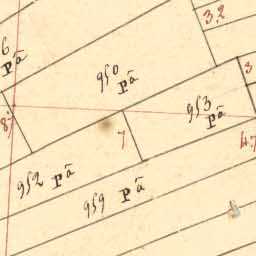 3,2
6
Pâ
950
Pâ
3
953
Pâ
8,
7
4,7
952 Pâ
959 Pâ